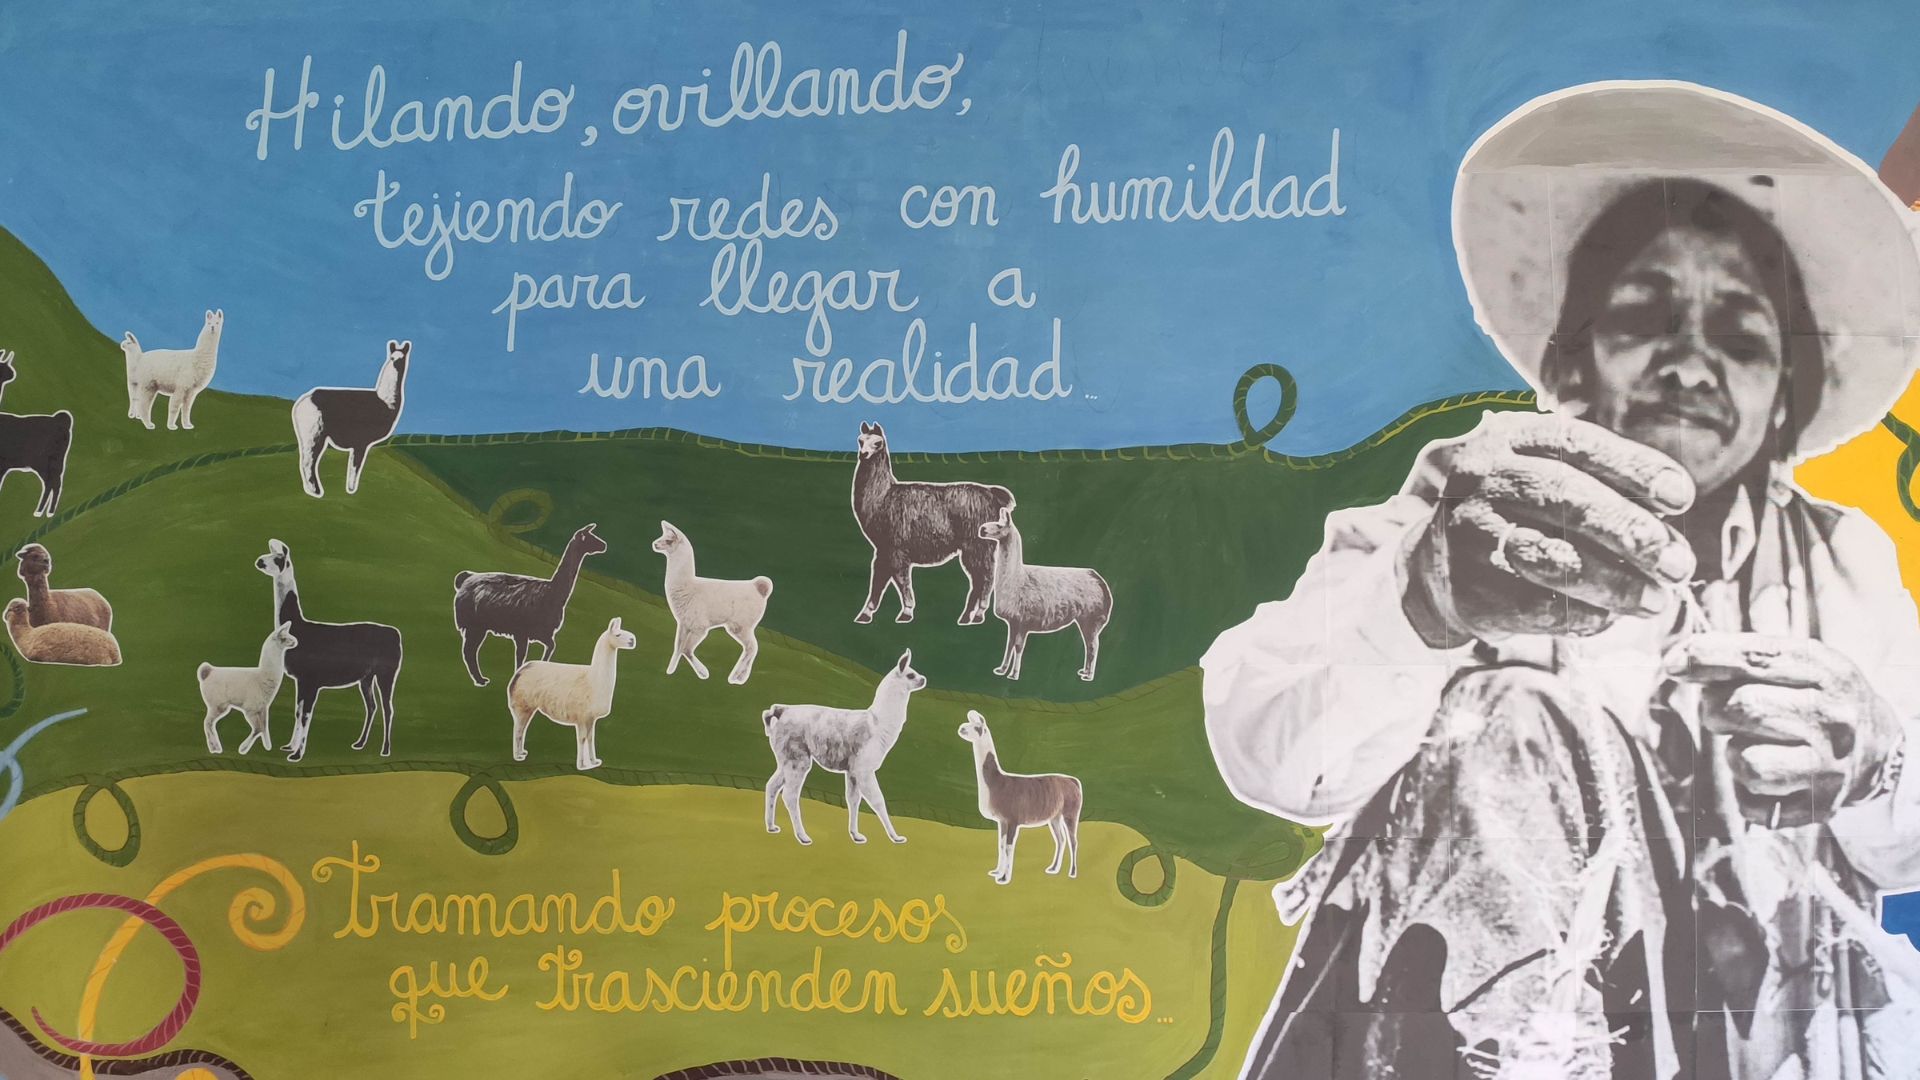 Hilando, ovillando,
tejiendo redes con humildad
para llegar a
una realidad...
Tramando procesos
que trascienden sueños...